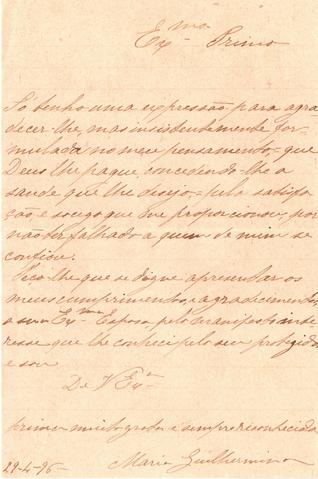 Exmo Primo
Só tenho uma expressão para agra-
decer-lhe, mas insistentemente for-
mulada no meu pensamento,- que
Deus lhe pague, concedendo-lhe a
saude que lhe desejo,- pela satisfa-
ção, e socego que me proporcionou, por
não ter falhado a quem de mim se
confiou.
Peço-lhe que se digne apresentar os
meus cumprimentos, e agradecimentos
a sua Exma Esposa, pelo manifesto inte-
resse que lhe conheci pelo seu protegido
e sou
De V Exa
prima muito grata e sempre reconhecida
29-4-96- Maria Guilhermina